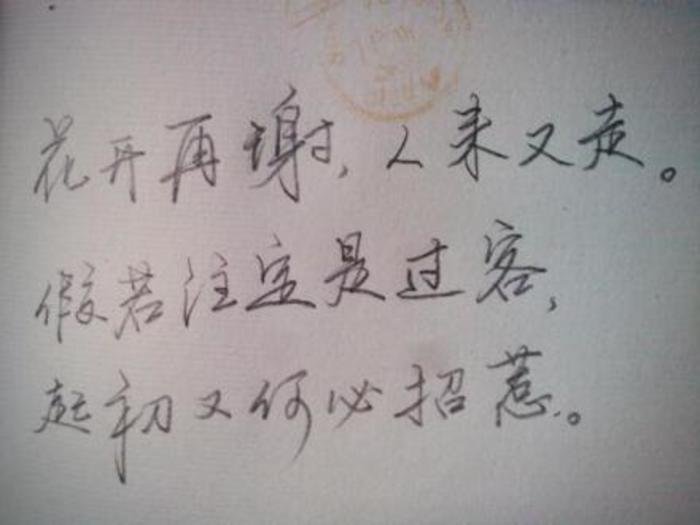 花开再谢，人来又走。
假若注定是过客，
起初又何必招惹。